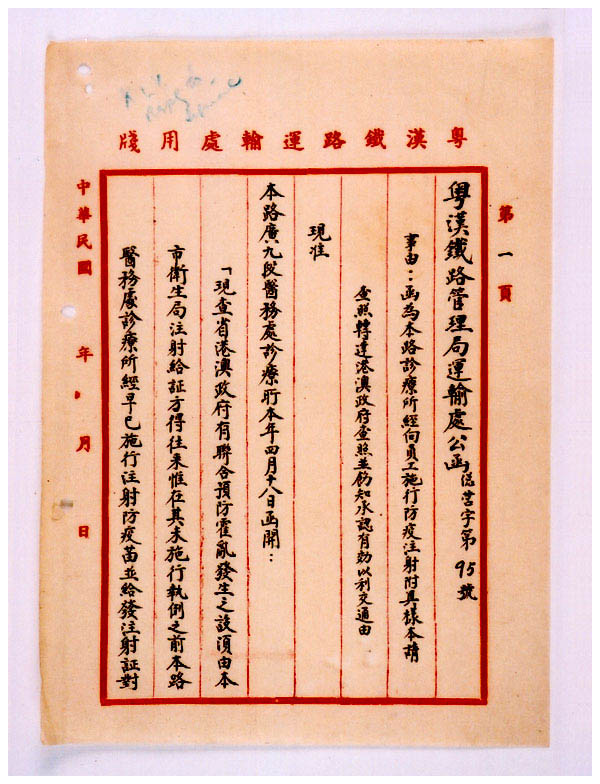 粵漢鐵路運輸處用牋
第一頁
粵漢鐵路管理局運輸處公函 字第95號
事由：函為本路診療所經向員工施行防疫注射附具樣本請
查照轉達港澳政府查照並飭知承認有効以利交通由
現准
本路廣九段醫務處診療所本年四月十八日函開：
「現查省港澳政府有聯合預防霍亂發生之設須由本
市衛生局注射給証方得往來惟在其未施行執例之前本路
醫務處診療所經早已施行注射防疫苗並給發注射証對
中華民國 年 月 日